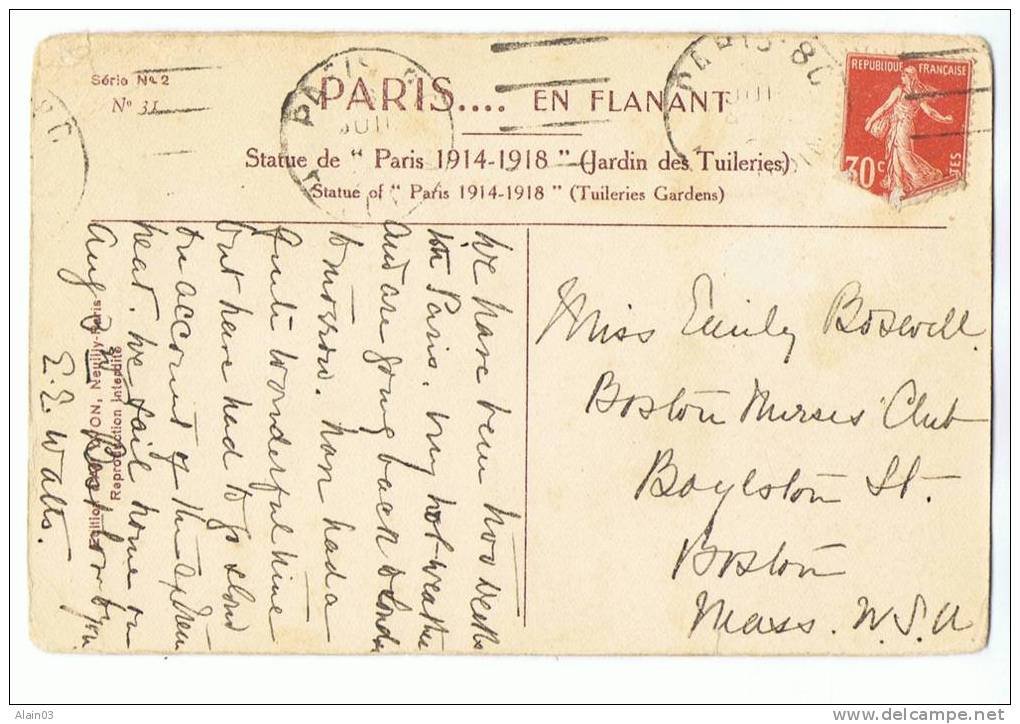 Série No. 2
No 31
PARIS.... EN FLANANT
Statue de " Paris 1914-1918 " (Jardin des Tuileries)
Statue of " Paris 1914-1918 " (Tuileries Gardens)
PARIS
JUIL
PARIS 8
REPUBLIQUE FRANÇAISE
30c
POSTES
We have been two weeks
in Paris. Very hot weather
and are going back to London
tomorrow. Have had a
quite wonderful time
but have had to go slow
on account of the extreme
heat. We sail home on
Aug 3rd Best for you
E. E. Watts.
Neuilly-Paris
Reproduction interdite
Miss Emily Boswell
Boston Nurses Club
Boylston St.
Boston
Mass. U.S.A
Alain03
www.delcampe.net